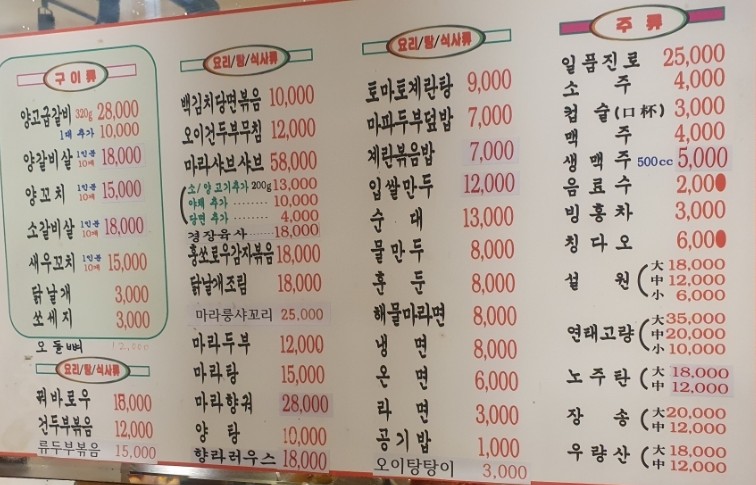 구이류
양고급갈비 320g 28,000
1대 추가 10,000
양갈비살 1인분 10개 18,000
양꼬치 1인분 10개 15,000
소갈비살 1인분 10개 18,000
새우꼬치 1인분 10개 15,000
닭날개 3,000
쏘세지 3,000
오돌뼈 12,000
요리/탕/식사류
꿔바로우 18,000
건두부볶음 12,000
류두부볶음 15,000
요리/탕/식사류
백김치당면볶음 10,000
오이건두부무침 12,000
마라샤브샤브 58,000
소/양고기추가 200g 13,000
야채 추가 ........ 10,000
당면 추가 ........ 4,000
경장육사 18,000
홍쏘로우감자볶음 18,000
닭날개조림 18,000
마라룽샤꼬리 25,000
마라두부 12,000
마라탕 15,000
마라향궈 28,000
양탕 10,000
향라러우스 18,000
요리/탕/식사류
토마토계란탕 9,000
마파두부덮밥 7,000
계란볶음밥 7,000
입쌀만두 12,000
순대 13,000
물만두 8,000
훈둔 8,000
해물마라면 8,000
냉면 8,000
온면 6,000
라면 3,000
공기밥 1,000
오이탕탕이 3,000
주류
일품진로 25,000
소주 4,000
컵술(口杯) 3,000
맥주 4,000
생맥주 500cc 5,000
음료수 2,000
빙홍차 3,000
칭다오 6,000
설원 大 18,000
中 12,000
小 6,000
연태고량 大 35,000
中 20,000
小 10,000
노주탄 大 18,000
中 12,000
장송 大 20,000
中 12,000
우량산 大 18,000
中 12,000